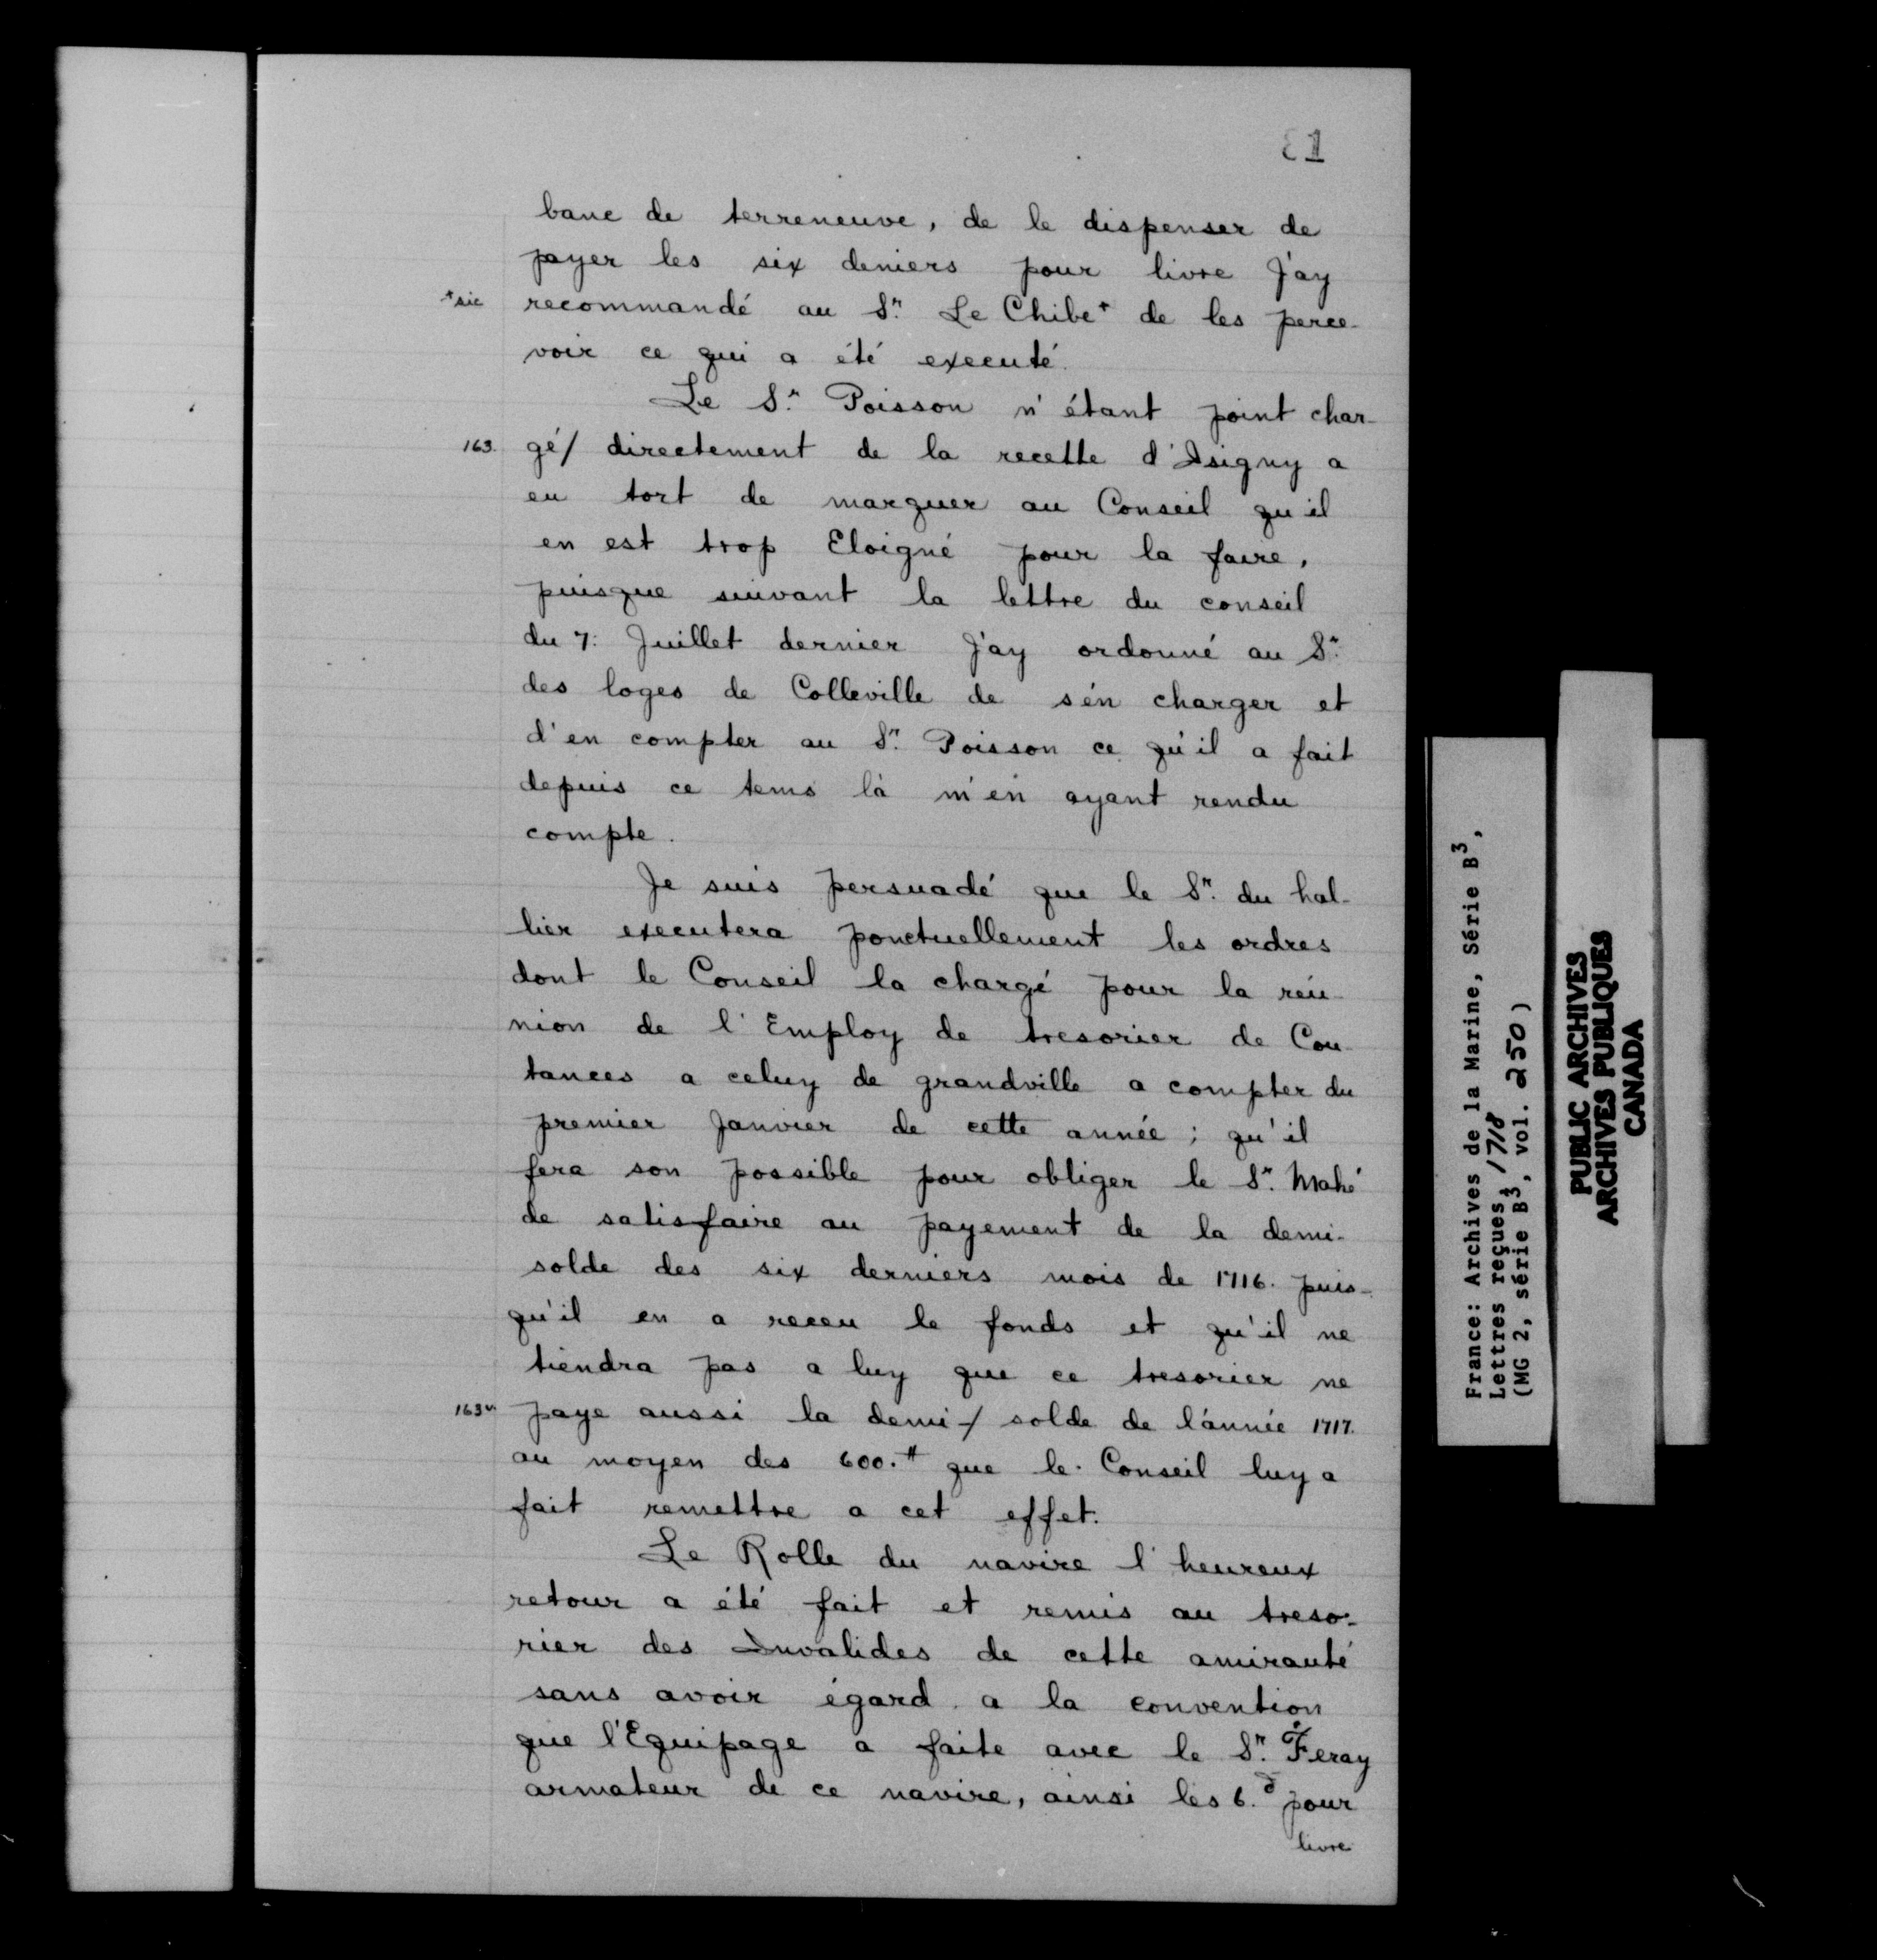 81
banc de terreneuve, de le dispenser de
payer les six deniers pour livre J'ay
*sic recommandé au Sr. Le Chibe+ de les perce-
voir ce qui a été executé.
Le Sr. Poisson n'étant point char-
163. gé/ directement de la recette d'Isigny a
eu tort de marquer au Conseil qu'il
en est trop Eloigné pour la faire,
puisque suivant la lettre du conseil
du 7: Juillet dernier J'ay ordonné au Sr.
des loges de Colleville de s'en charger et
d'en compter au Sr. Poisson ce qu'il a fait
depuis ce tems là m'en ayant rendu
compte.
Je suis persuadé que le Sr. du hal-
lier executera ponctuellement les ordres
dont le Conseil la chargé pour la réu-
nion de l'Employ de tresorier de Cou-
tances a celuy de grandville a compter du
premier Janvier de cette année; qu'il
fera son possible pour obliger le Sr. Mahé
de satisfaire au payement de la demi-
solde des six derniers mois de 1716. puis-
qu'il en a receu le fonds et qu'il ne
tiendra pas a luy que ce tresorier ne
163v. paye aussi la demi-/ solde de l'année 1717.
au moyen des 600.# que le Conseil luy a
fait remettre a cet effet.
Le Rolle du navire l'heureux
retour a été fait et remis au treso-
rier des Invalides de cette amirauté
sans avoir égard a la convention
que l'Equipage a faite avec le Sr. Feray
armateur de ce navire, ainsi les 6.d pour
livre
France: Archives de la Marine, Série B3,
Lettres reçues, 1718
(MG 2, série B3, vol. 250)
PUBLIC ARCHIVES
ARCHIVES PUBLIQUES
CANADA